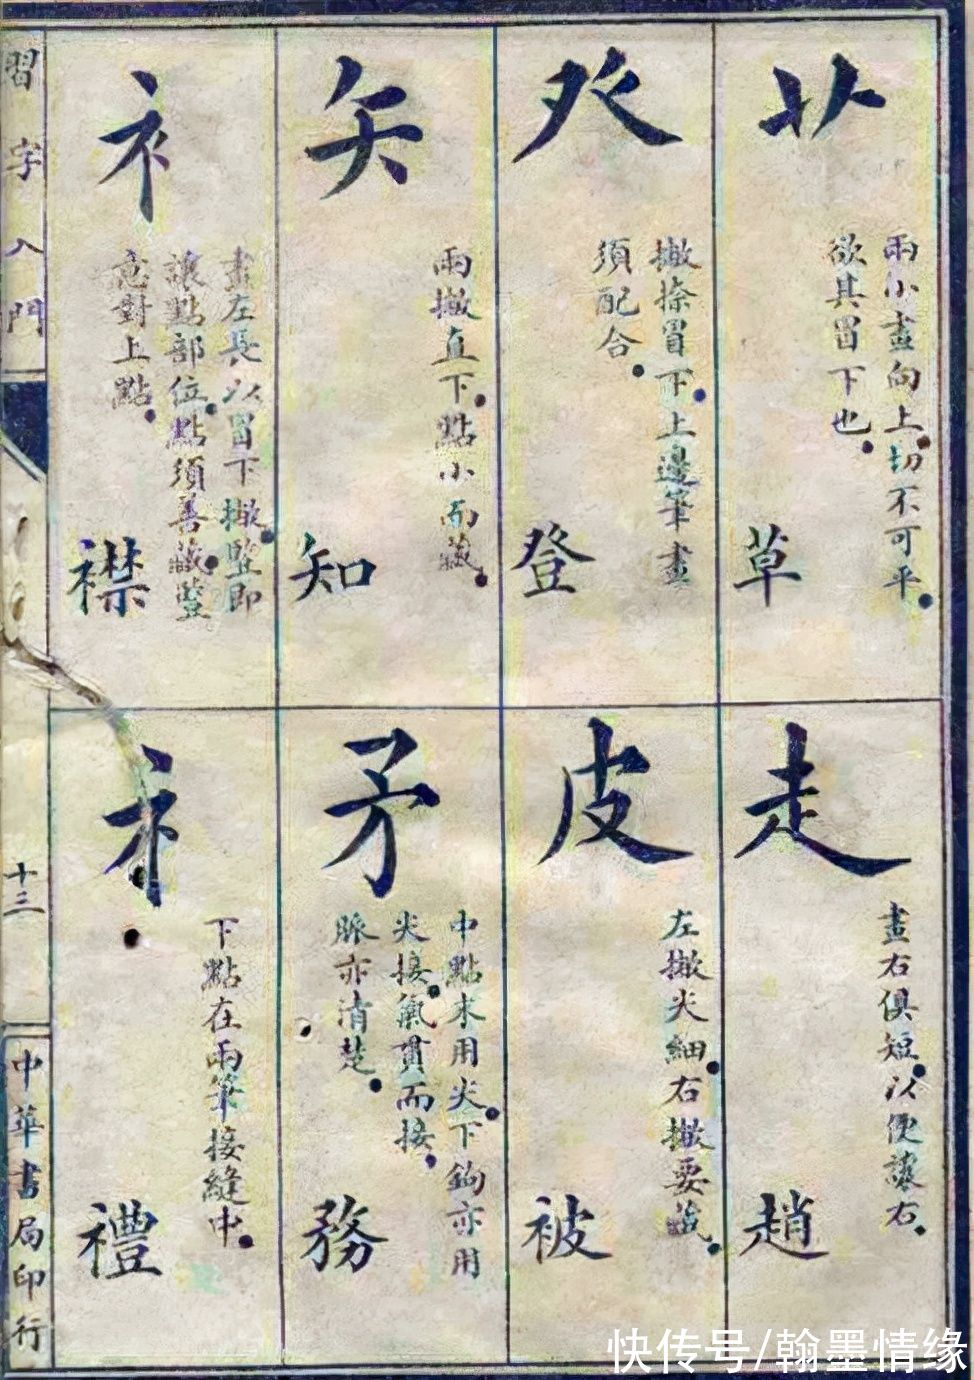 艹
兩小畫向上切不可平
欲其冒下也
草
癶
撇捺冒下上邊筆畫
須配合
登
矢
兩撇直下點小而藏
知
衤
畫左長以冒下撇豎即
讓點部位點須善藏豎
意對上點
襟
走
畫右俱短以便讓右
趙
皮
左撇尖細右撇要藏
被
矛
中點末用尖下鉤亦用
尖接氣貫而接
脈亦清楚
務
礻
下點在兩筆接縫中
禮
習字入門
十三
中華書局印行
快传号/翰墨情缘